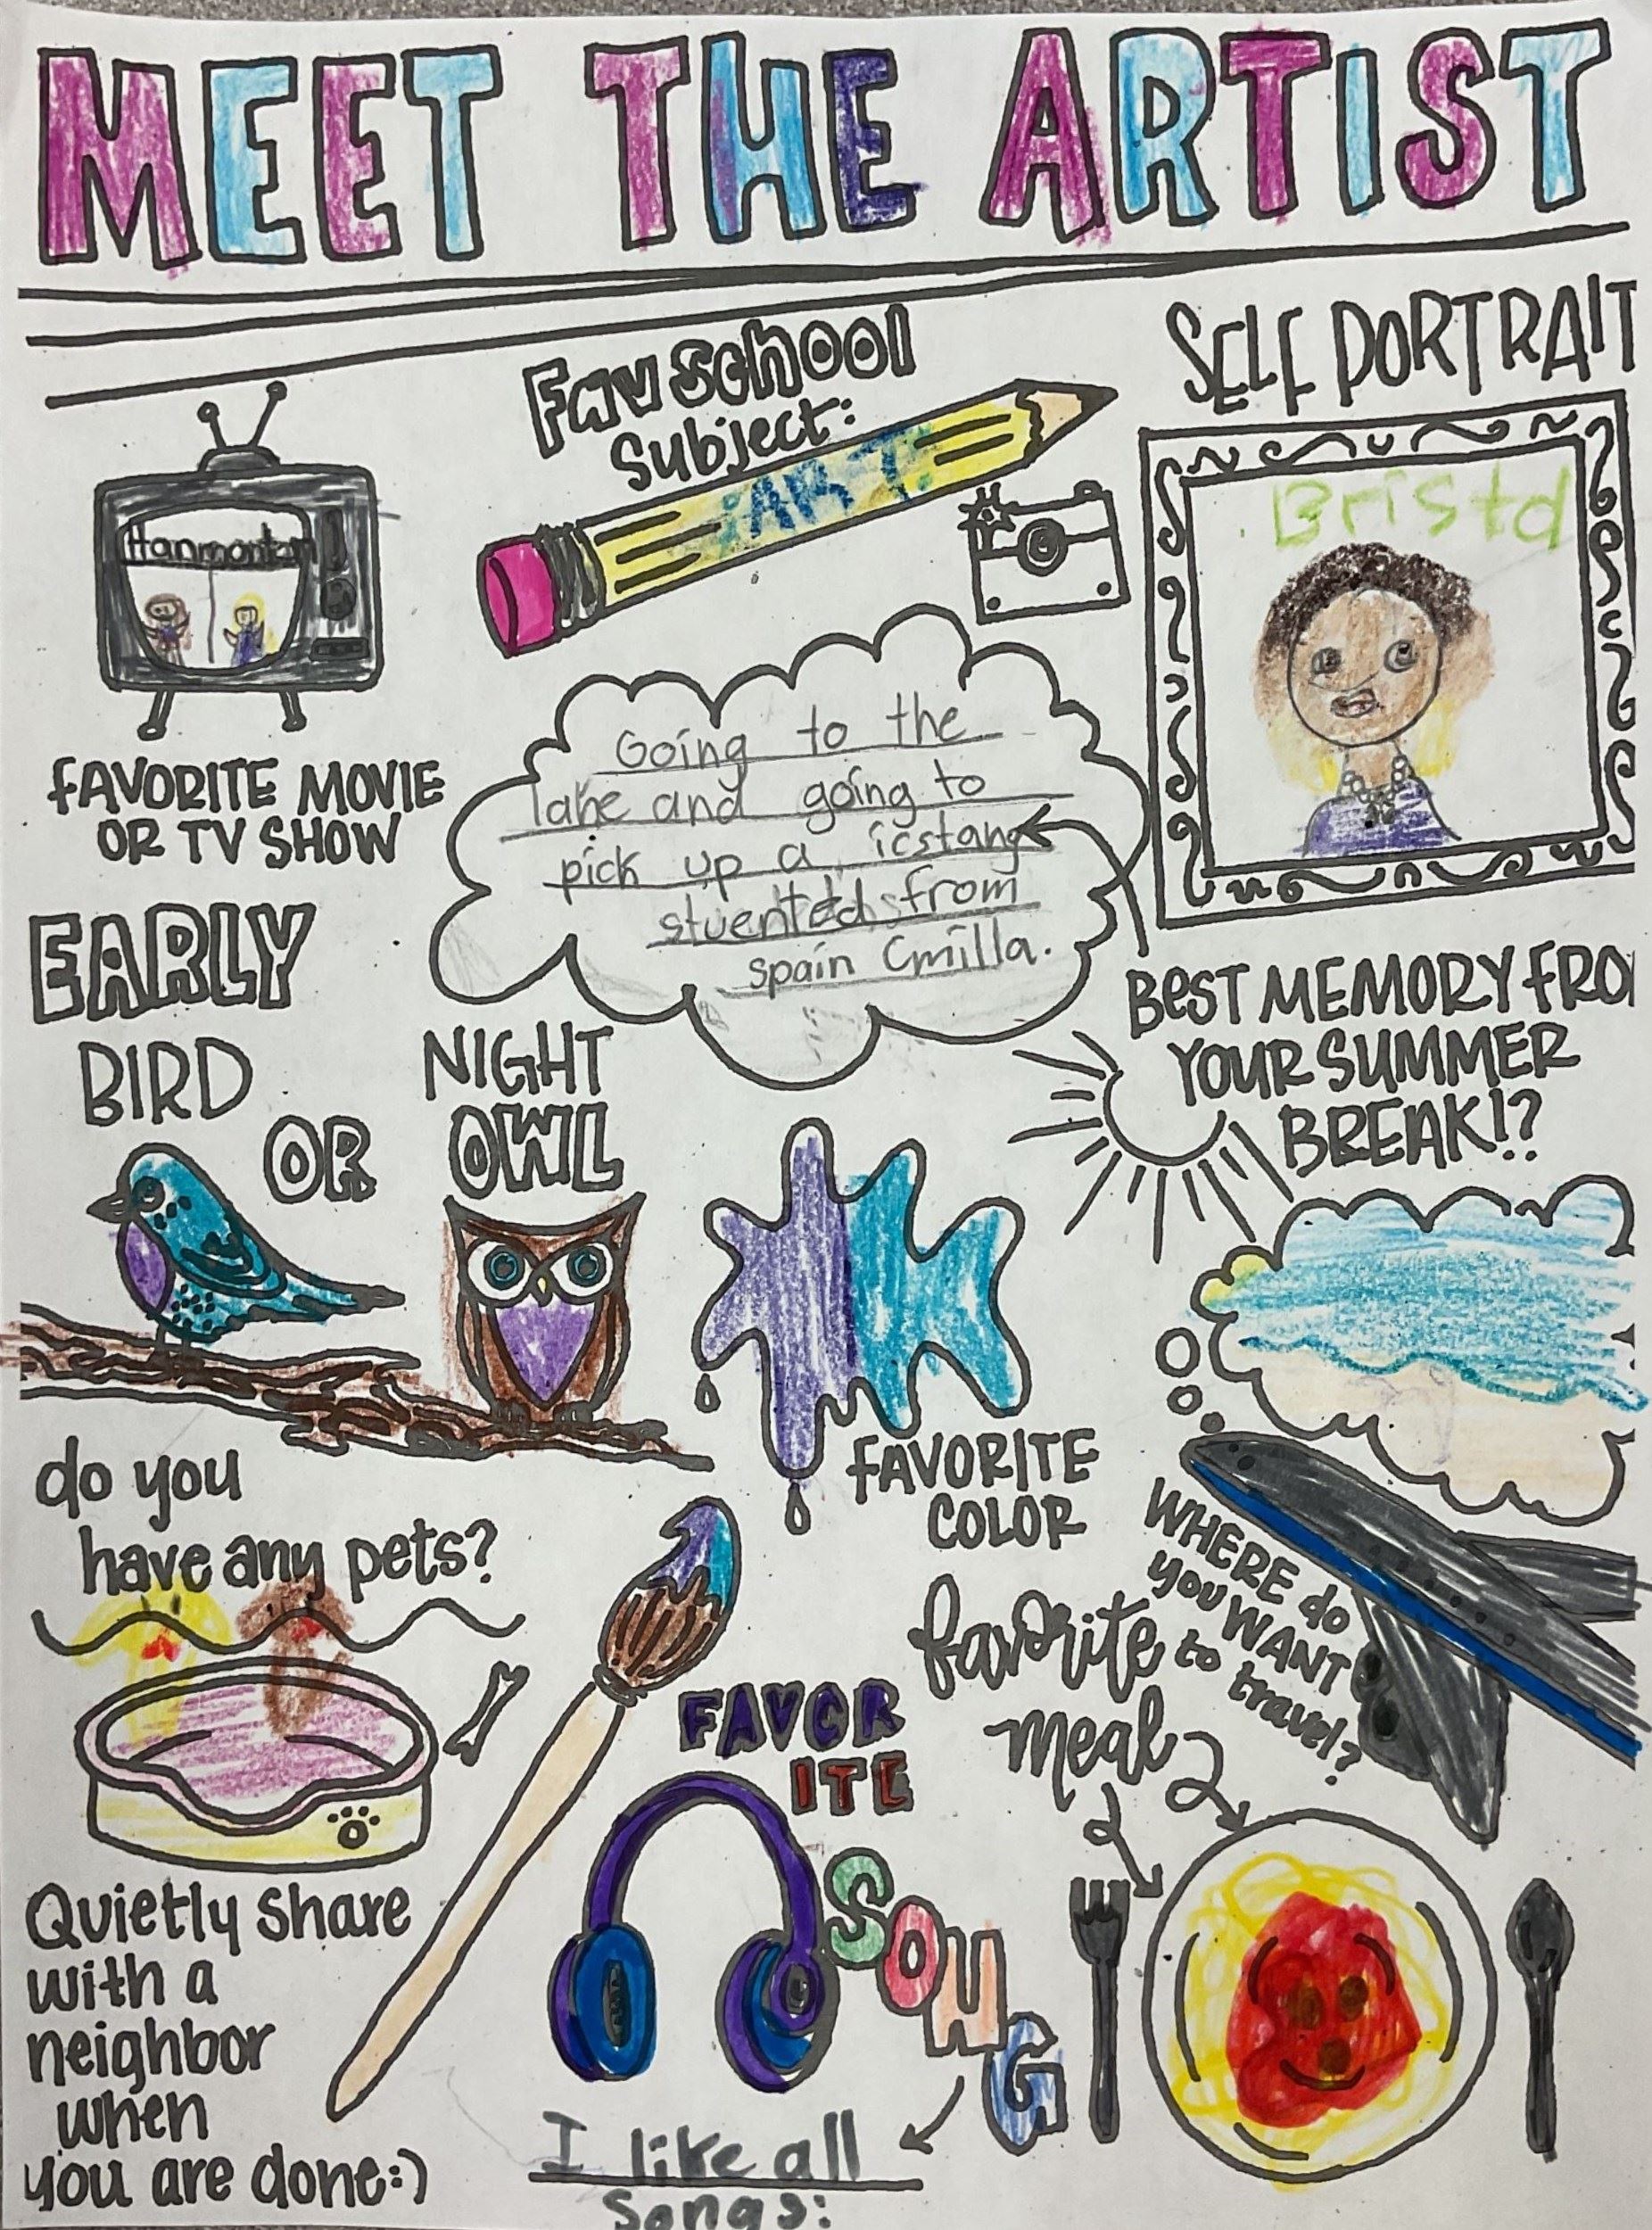 MEET THE ARTIST
Fav School
Subject:
ART
SELF PORTRAIT
Bristol
Hanmontan
FAVORITE MOVIE
OR TV SHOW
Going to the
lake and going to
pick up a icstang
stuented from
spain Cmilla.
BEST MEMORY FRO
YOUR SUMMER
BREAK!?
EARLY
BIRD
OR
NIGHT
OWL
FAVORITE
COLOR
WHERE do
you WANT
to travel?
do you
have any pets?
favorite
meal
FAVOR
ITE
SONG
I like all
songs:
Quietly share
with a
neighbor
when
you are done:)